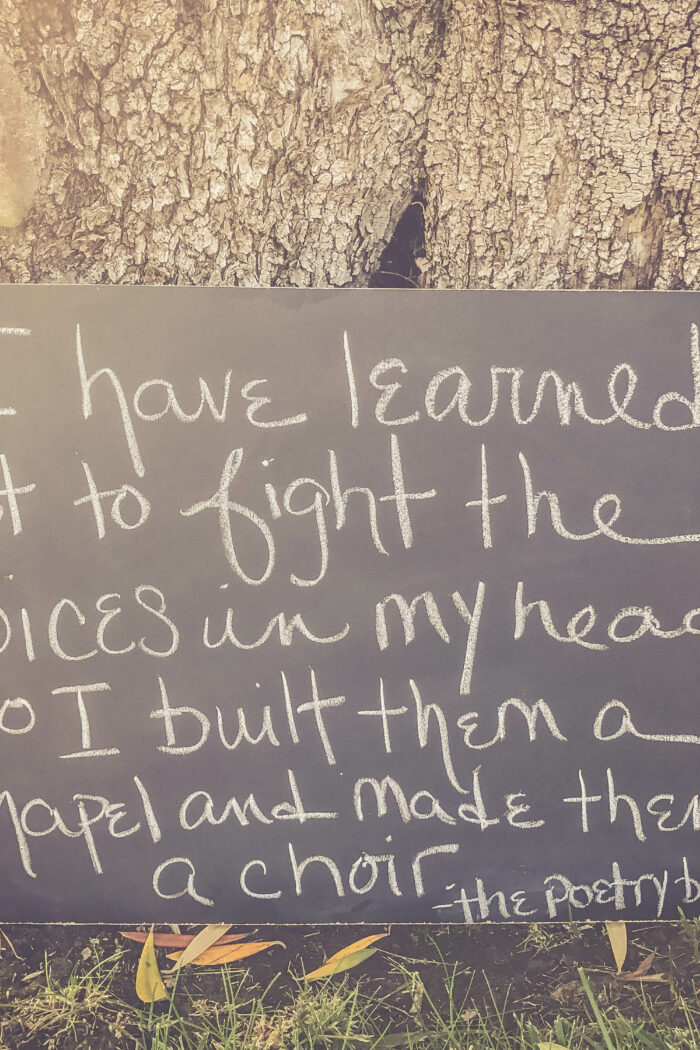 I have learned
t to fight the
oices in my head
o I built them a
hapel and made them
a choir
-the poetry b